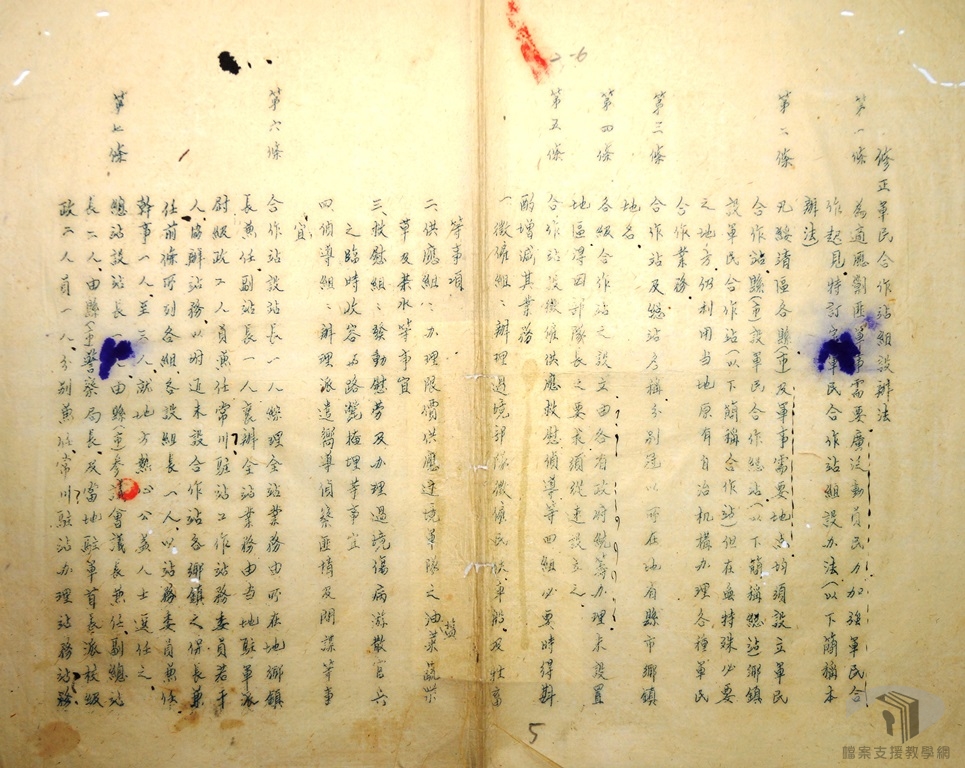 2-6
修正軍民合作站組設辦法
第一條 為適應剿匪軍事需要廣泛動員民力加強軍民合
作起見特訂定軍民合作站組設办法(以下簡稱本
辦法)
第二條 凡綏靖區各縣(市)及軍事需要地点均須設立軍民
合作站縣(市)設軍民合作總站(以下簡稱總站)鄉鎮
設軍民合作站(以下簡稱合作站)但在無特殊必要
之地方仍利用当地原有自治机構办理各種軍民
合作業務
第三條 合作站及總站名稱分別冠以所在地有縣市鄉鎮
地名
第四條 各級合作站之設立由各有政府統籌办理未設置
地區得因部隊長之要求須從速設立之
第五條 合作站設徵僱供應救慰偵導等四組必要時得斟
酌增減其業務
一、徵僱組:辦理過境部隊徵僱民伕車船及牲畜
等事項
二、供應組:办理限價供應过境軍隊之油菜蔬柴
鹽
草及茶水等事宜
三、救慰組:發動慰勞及办理過境傷病游散官兵
之臨時收容与路斃掩埋等事宜
四、偵導組:辦理派遣嚮導偵察匪情及間諜等事
宜
第六條 合作站設站長一人綜理全站業務由所在地鄉鎮
長兼任副站長一人襄辦全站業務由当地駐軍派
尉級政工人員兼任常川駐站工作站務委員若干
人協辦站務以附近未設合作站各鄉鎮之保長兼
任前條所列各組各設組長一人以站務委員兼任
幹事一人至三人就地方熱心公益人士選任之
第七條 總站設站長一人由縣(市)參議會議長兼任副總站
長二人由縣(市)警察局長及當地駐軍首長派校級
政工人員一人分別兼任常川駐站办理站務站務
5
檔案支援教學網